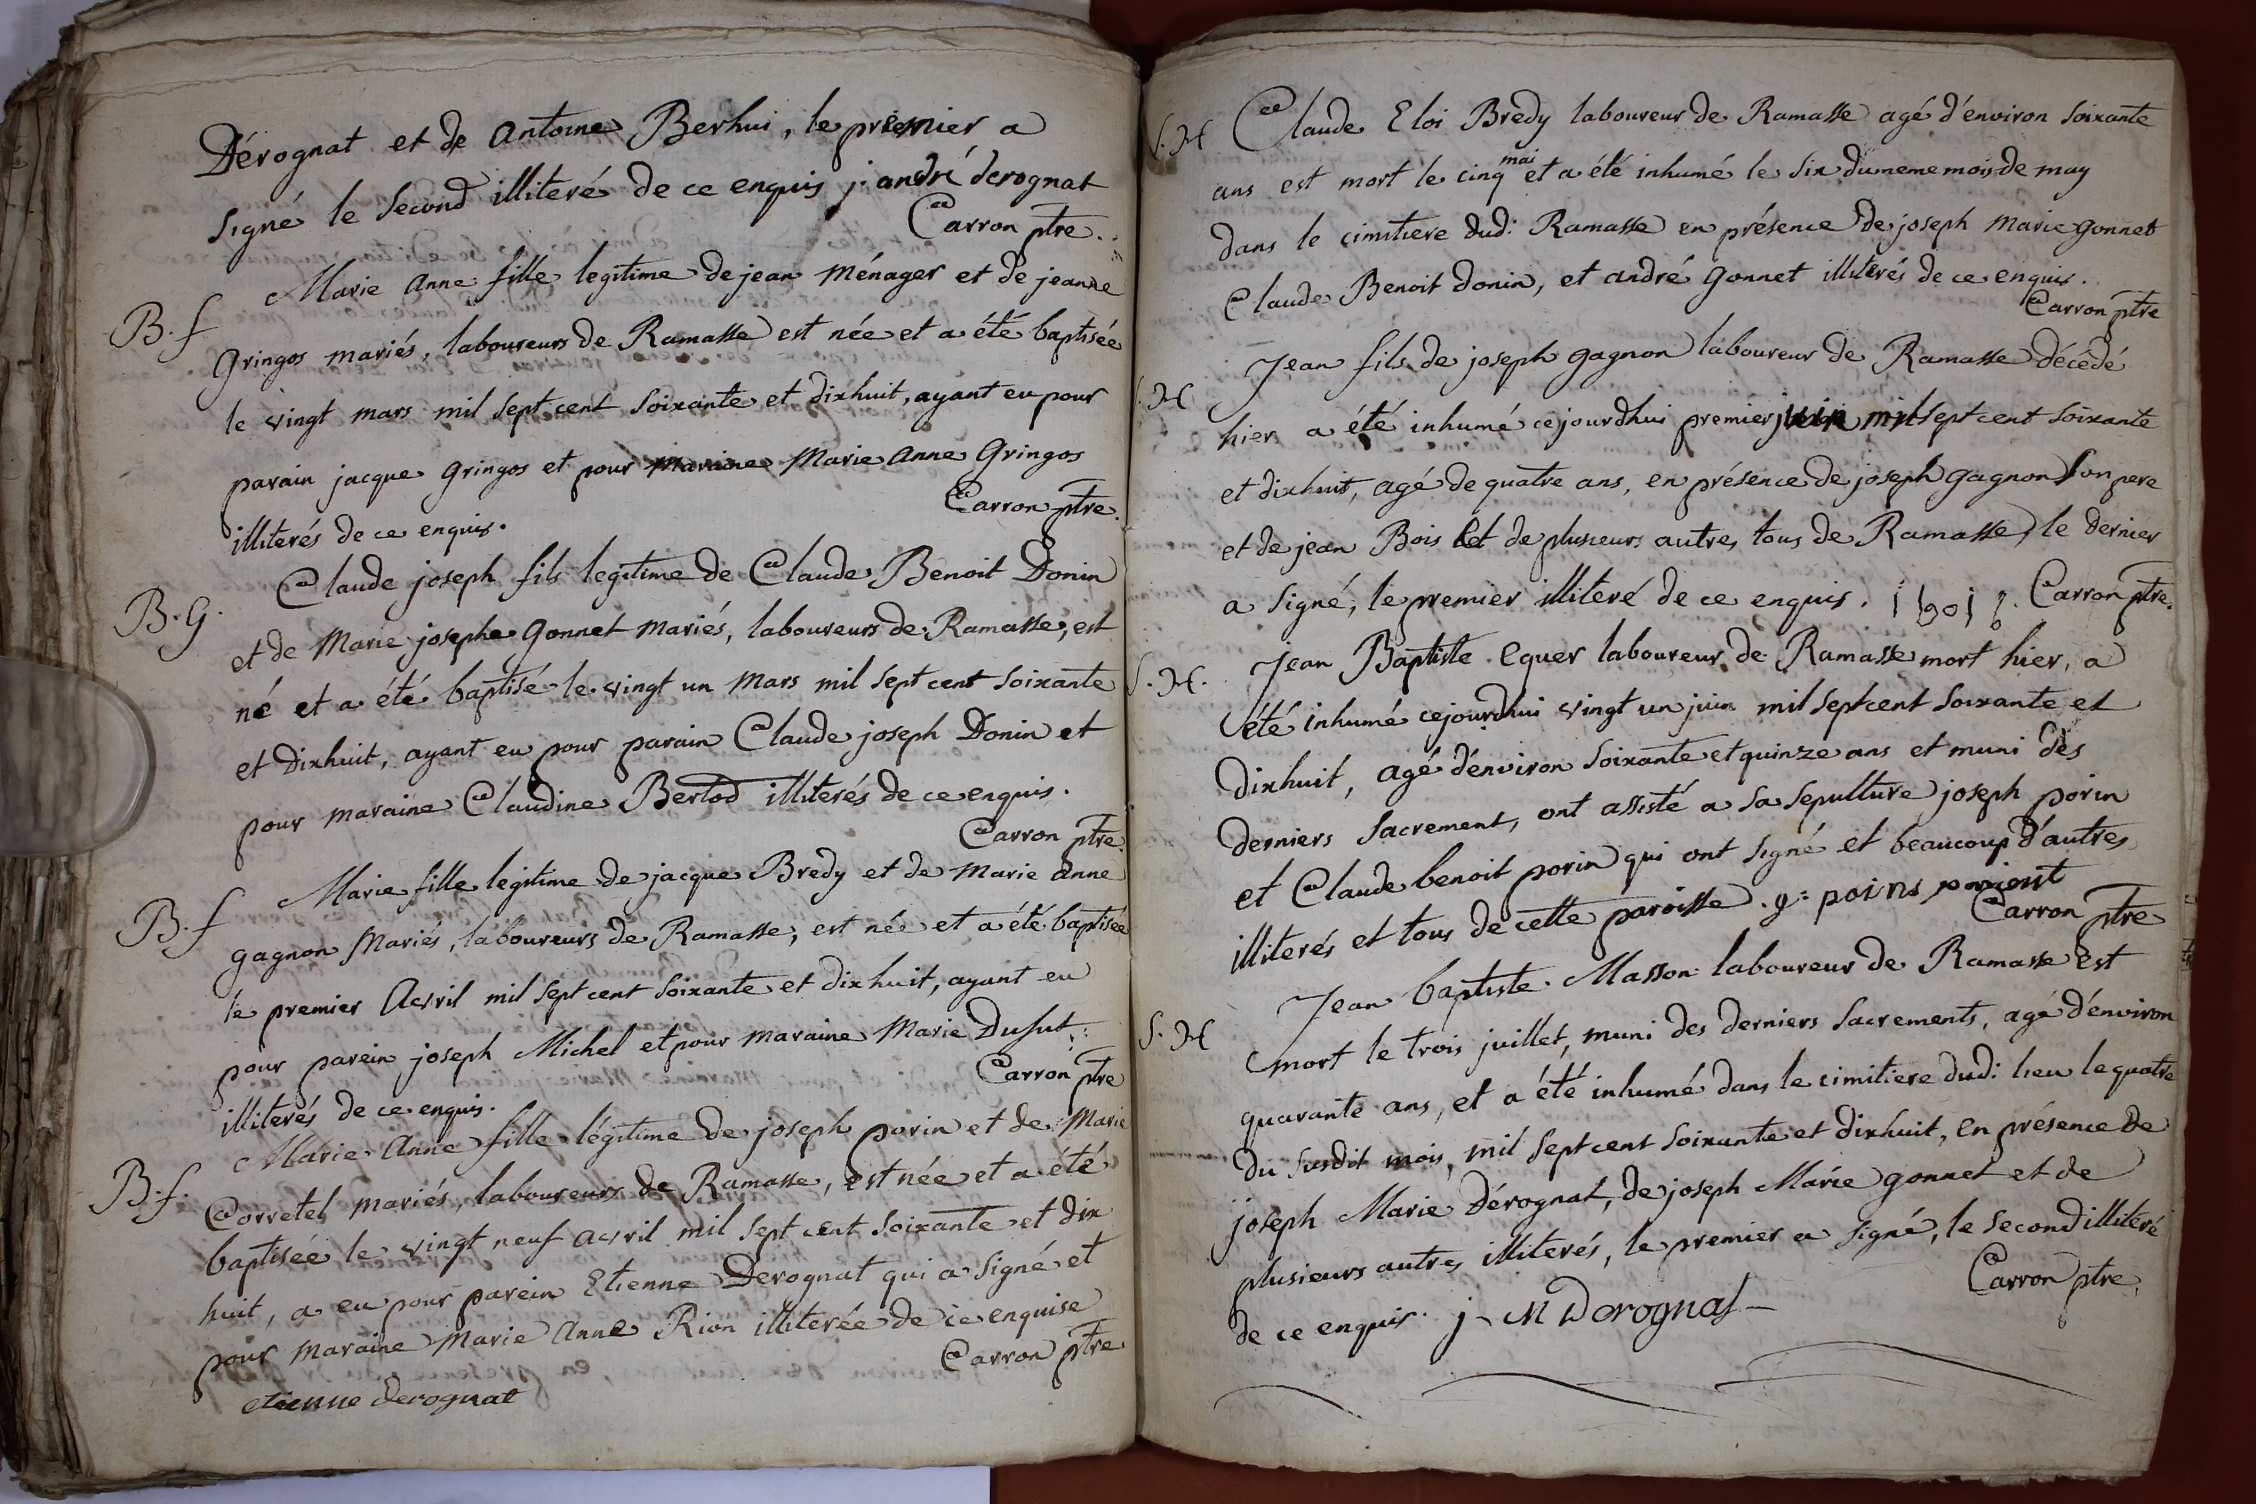 Dérognat et de antoine Berhui, le premier a
signé le second illiteré de ce enquis j. andré derognat
Carron ptre.
B. f Marie anne fille legitime de jean Ménager et de jeanne
Gringos mariés, laboureurs de Ramasse est née et a été baptisée
le vingt mars mil sept cent soixante et dixhuit, ayant eu pour
parain jacque Gringos et pour maraine Marie anne Gringos
illiterés de ce enquis. Carron ptre.
B. G. Claude joseph fils legitime de Claude Benoit Donin
et de Marie josephe Gonnet mariés, laboureurs de Ramasse, est
né et a été baptisé le vingt un mars mil sept cent soixante
et dixhuit, ayant eu pour parain Claude joseph Donin et
pour maraine Claudine Bertod illiterés de ce enquis.
Carron ptre.
B. f Marie fille legitime de jacque Bredy et de Marie anne
gagnon Mariés, laboureurs de Ramasse, est née et a été baptisée
le premier Avril mil sept cent soixante et dixhuit, ayant eu
pour parein joseph Michel et pour maraine Marie Dufut
illiterés de ce enquis. Carron ptre
B. f. Marie Anne fille légitime de joseph porin et de Marie
Corretel mariés, laboureurs de Ramasse, est née et a été
baptisée le vingt neuf avril mil sept cent soixante et dix
huit, a eu pour parein Etienne Derognat qui a signé et
pour maraine Marie Anne Rion illiterée de ce enquise
Carron ptre
etienne derognat
S. H Claude Eloi Bredy laboureur de Ramasse agé d'environ soixante
ans est mort le cinq mai et a été inhumé le six du meme mois de may
dans le cimitiere dud: Ramasse en présence de joseph Marie gonnet
Claude Benoit donin, et andré gonnet illiterés de ce enquis.
Carron ptre
S. H Jean fils de joseph gagnon laboureur de Ramasse décédé
hier a été inhumé cejourdhui premier juin mil sept cent soixante
et dixhuit, agé de quatre ans, en présence de joseph gagnon son pere
et de jean Bois et de plusieurs autres tous de Ramasse, le dernier
a signé, le premier illiteré de ce enquis. Carron ptre.
S. H. Jean Baptiste Equer laboureur de Ramasse mort hier, a
été inhumé cejourdhui vingt un juin mil sept cent soixante et
dixhuit, agé d'environ soixante et quinze ans et muni des
derniers sacrement, ont assisté a sa sepulture joseph porin
et Claude benoit porin qui ont signé et beaucoup d'autres
illiterés et tous de cette paroisse.
Carron ptre
S. H Jean baptiste Masson laboureur de Ramasse est
mort le trois juillet, muni des derniers sacrements, agé d'environ
quarante ans, et a été inhumé dans le cimitiere dud: lieu le quatre
du susdit mois, mil sept cent soixante et dixhuit, en présence de
joseph Marie Dérognat, de joseph Marie gonnet et de
plusieurs autres illiterés, le premier a signé, le second illiteré
de ce enquis. j M Derognat Carron ptre.